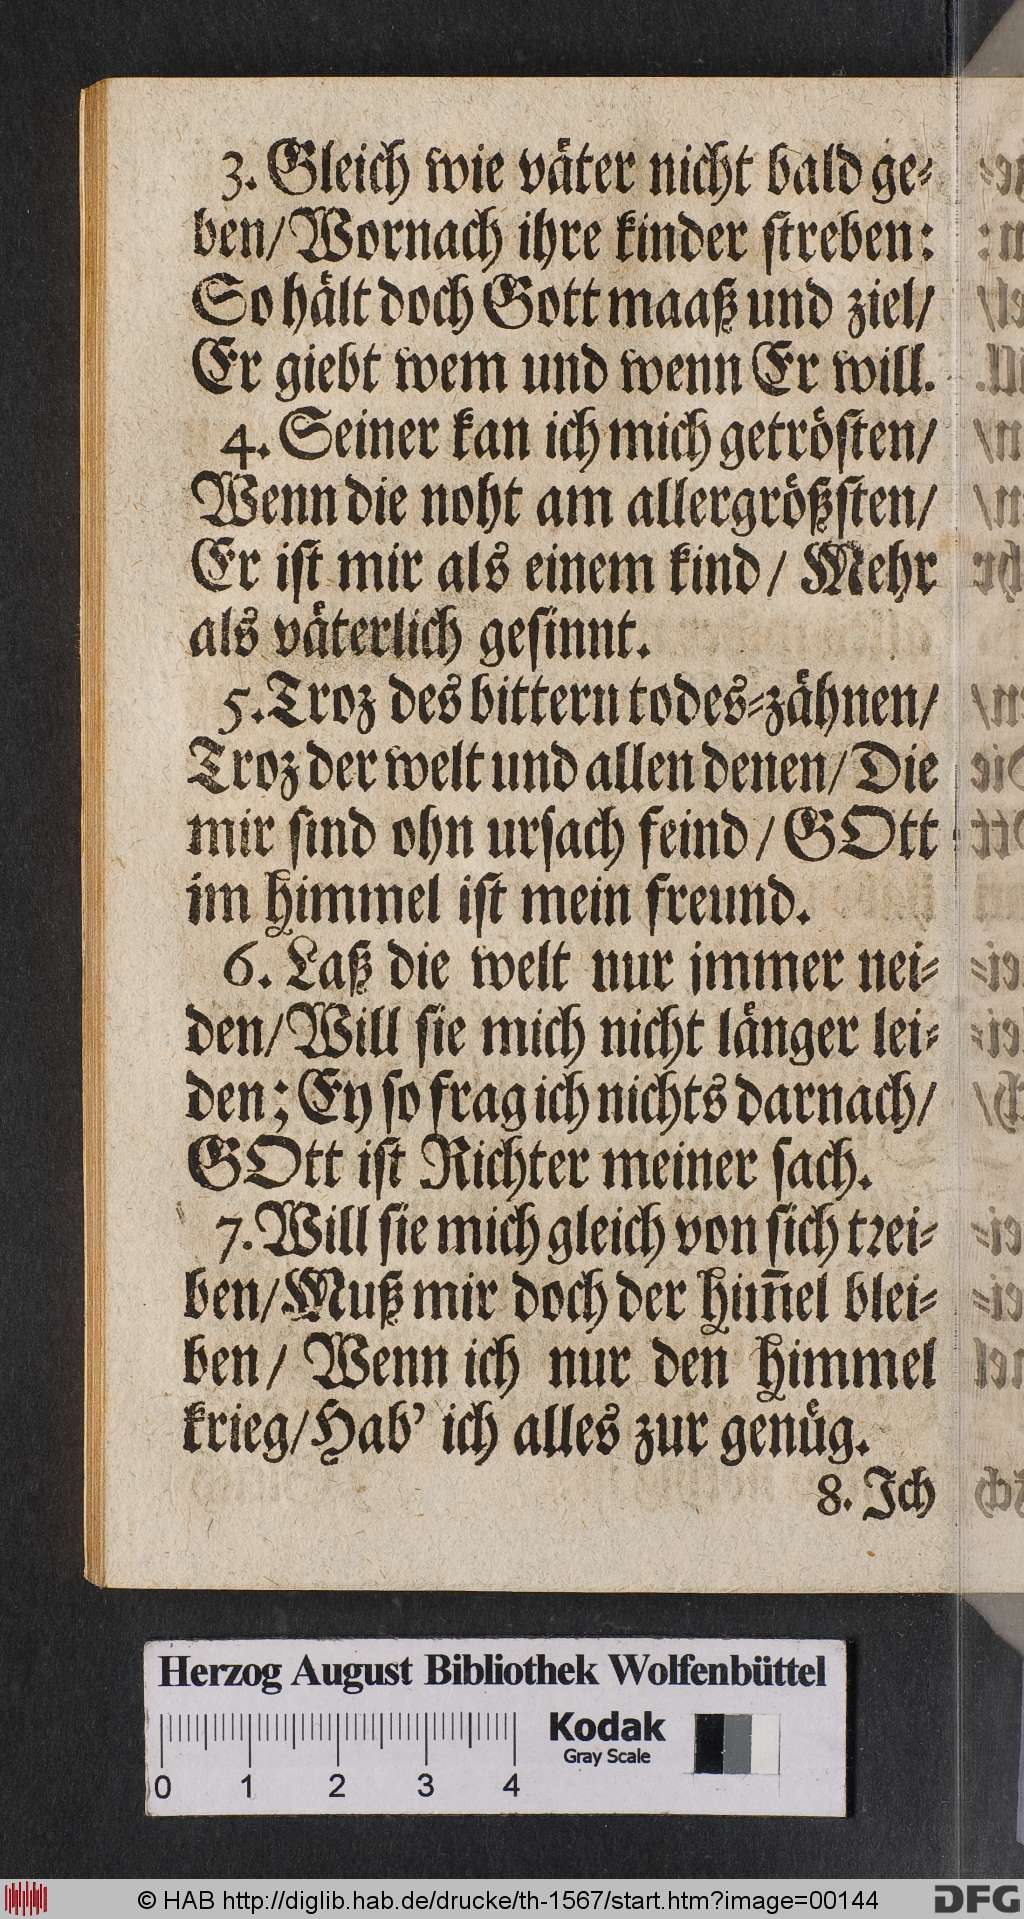 3. Gleich wie väter nicht bald ge-
ben/ Wornach ihre kinder streben:
So hält doch Gott maaß und ziel/
Er giebt wem und wenn Er will.
4. Seiner kan ich mich getrösten/
Wenn die noht am allergrößsten/
Er ist mir als einem kind / Mehr
als väterlich gesinnt.
5. Troz des bittern todes-zähnen/
Troz der welt und allen denen/ Die
mir sind ohn ursach feind / GOtt
im himmel ist mein freund.
6. Laß die welt nur immer nei-
den/ Will sie mich nicht länger lei-
den; Ey so frag ich nichts darnach/
GOtt ist Richter meiner sach.
7. Will sie mich gleich von sich trei-
ben/ Muß mir doch der him̅el blei-
ben/ Wenn ich nur den himmel
krieg/ Hab' ich alles zur genüg.
8. Ich
Herzog August Bibliothek Wolfenbüttel
Kodak
Gray Scale
0 1 2 3 4
© HAB http://diglib.hab.de/drucke/th-1567/start.htm?image=00144
DFG